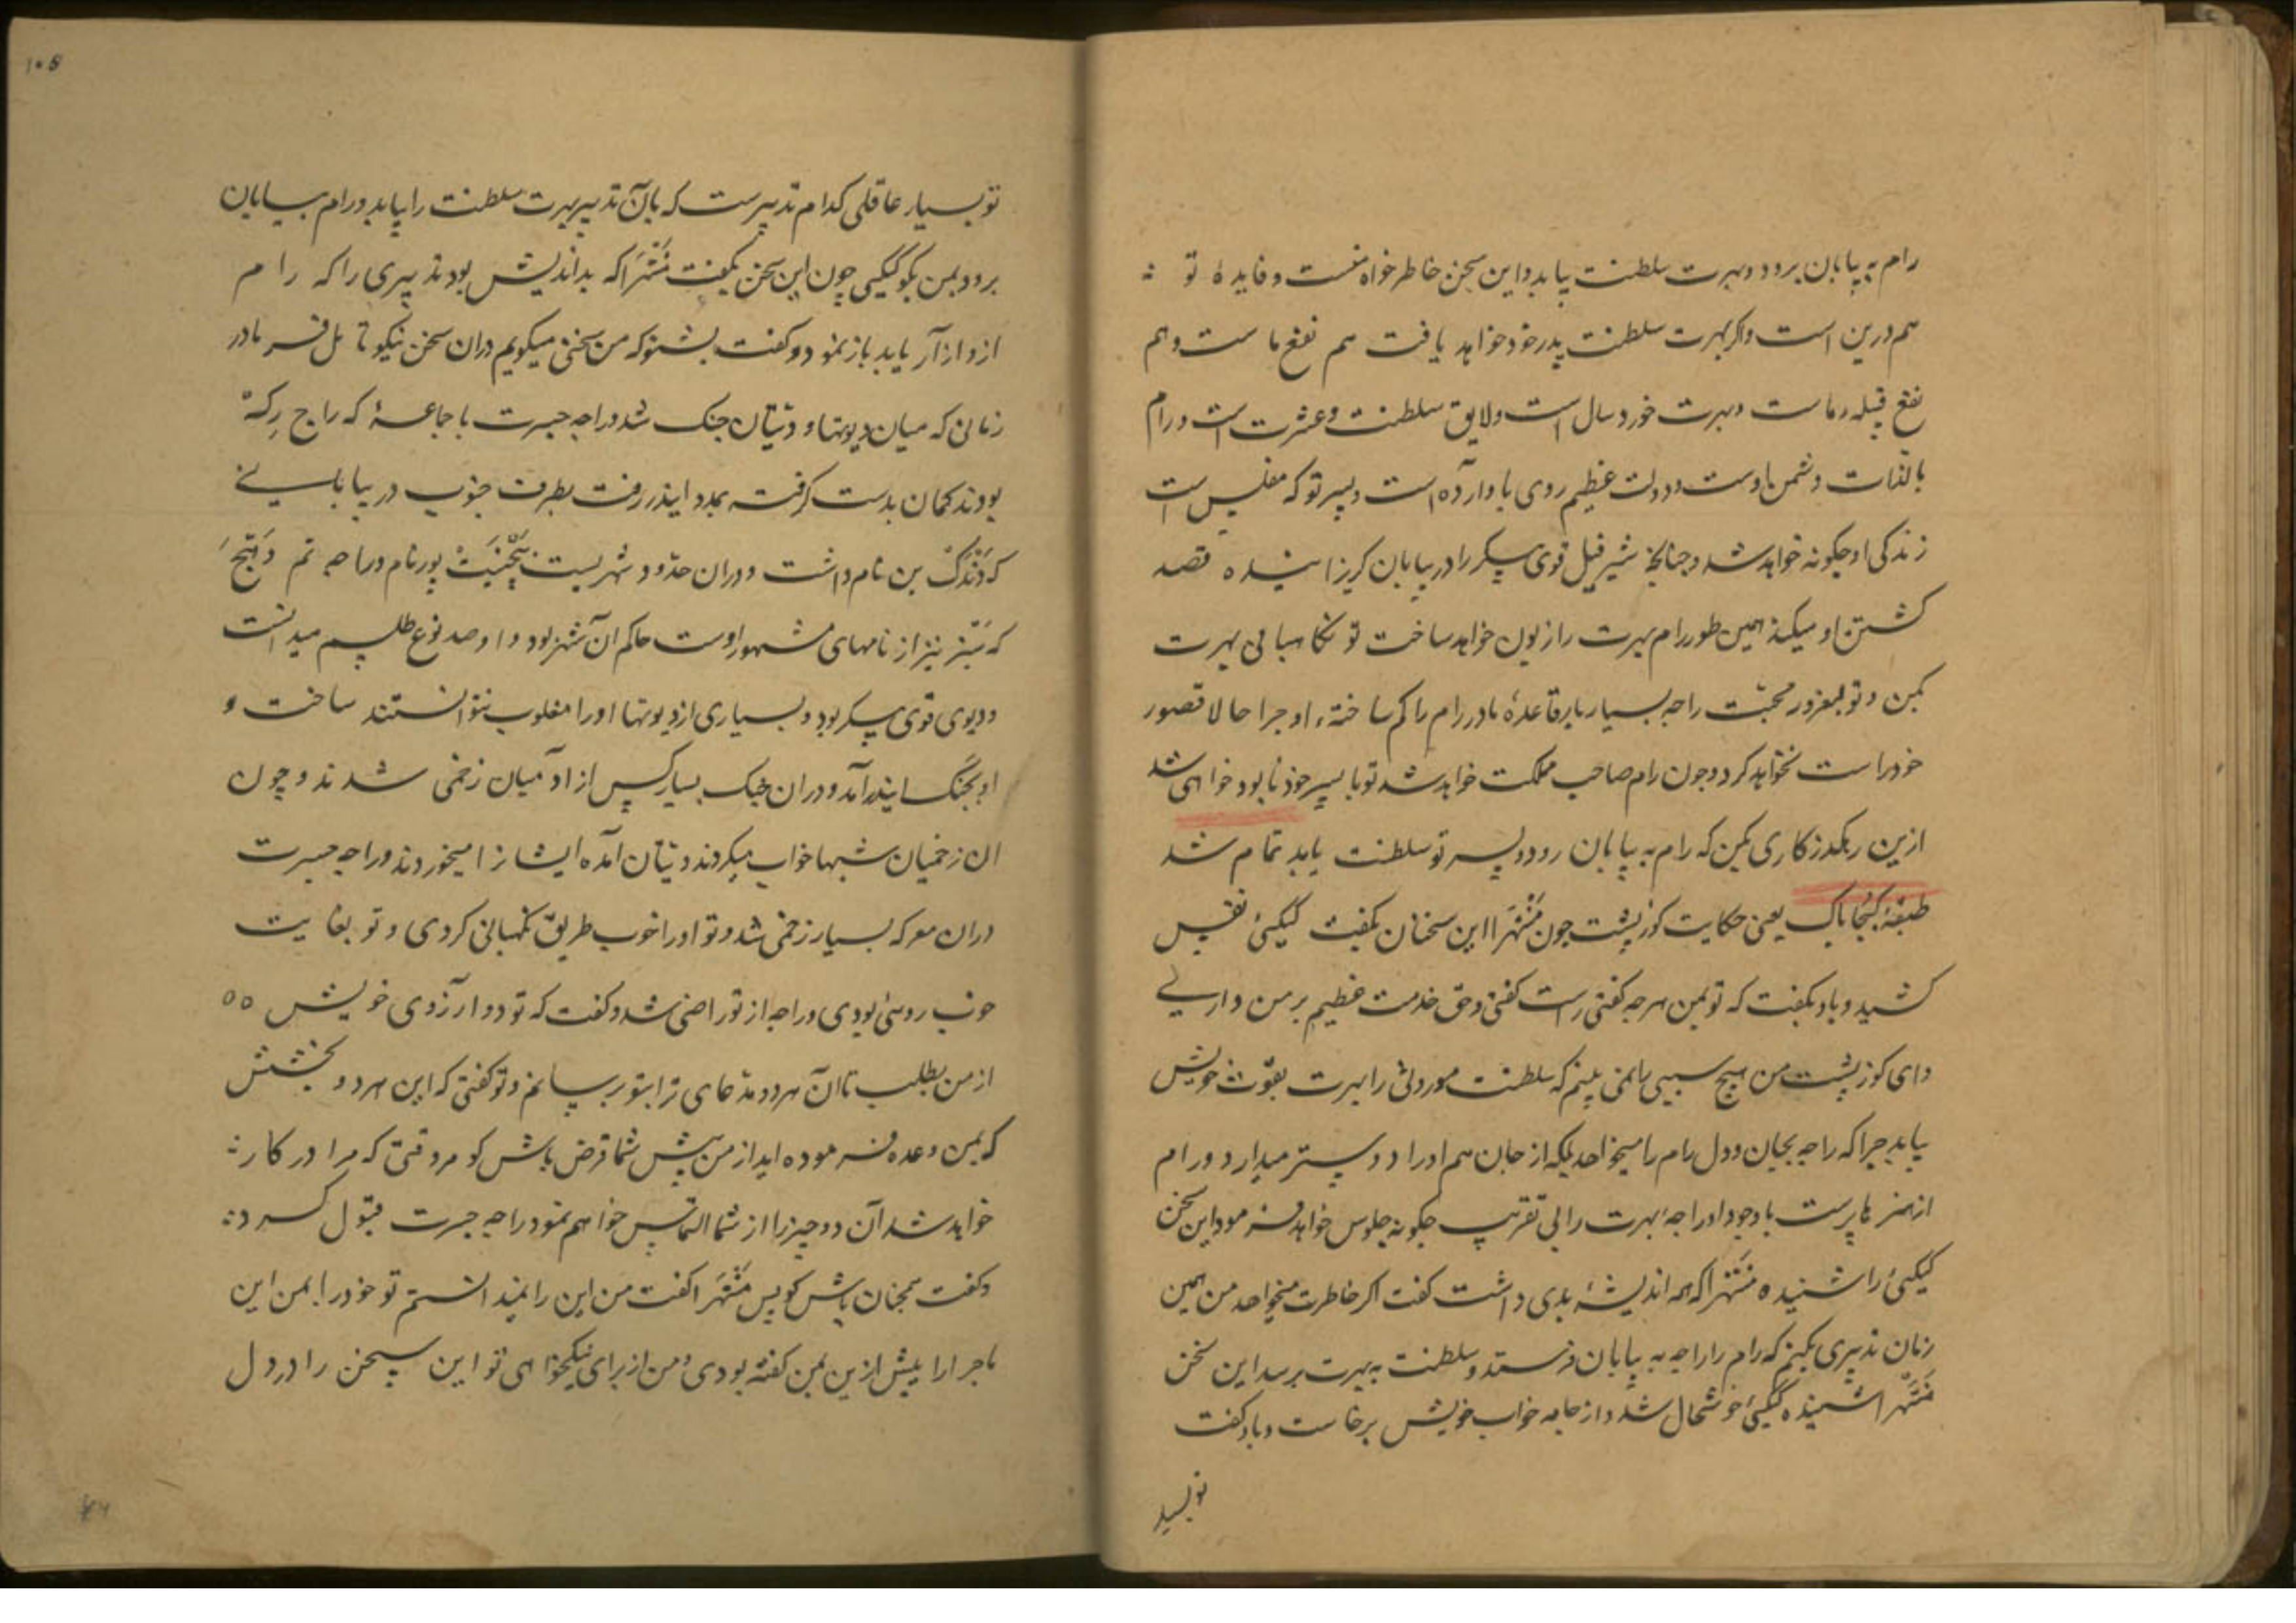 رام به بیابان برود و بهرت سلطنت بیابد و این سخن خاطر خواه منست و فایدهٔ تو
هم درین است و اکر بهرت سلطنت پدر خود خواهد یافت هم نفع ماست و هم
نفع قبیله ماست و بهرت خورد سال است و لایق سلطنت و عشرت است و رام
بالذات دشمن اوست و دولت عظیم روی باو آورده است و پسر تو که مفلس است
زندکی او چکونه خواهد شد و چنانچه شیر فیل قوی پیکر را در بیابان کریزانیده قصد
کشتن او میکند همین طور رام بهرت را زبون خواهد ساخت تو نکاهبانی بهرت
بکن و تو بغرور محبت راجه بسیار بار قاعدهٔ مادر رام را کم ساختهٔ او چرا حالا قصور
خود راست نخواهد کرد و چون رام صاحب مملکت خواهد شد تو با پسر خود نابود خواهی شد
ازین رهکذر کاری بکن که رام به بیابان رود و پسر تو سلطنت یابد تمام شد
طبقهٔ کبجا باک یعنی حکایت کوز پشت چون منتهرا این سخنان بکفت کیکئ نفس
کشید و باو بکفت که تو بمن هر چه کفتی راست کفتی و حق خدمت عظیم بر من داری
و ای کوز پشت من هیچ سببی را نمی بینم که سلطنت موروثی را بهرت بقوت خویش
بیابد چرا که راجه بجان و دل رام را میخواهد بلکه از جان هم او را دوستر میدارد و رام
از هنرها پرست با وجود او راجه بهرت را بی تقریب چکونه جلوس خواهد فرمود این سخن
کیکئ را شنیده منتهرا که همه اندیشهٔ بدی داشت کفت اکر خاطرت میخواهد من همین
زمان تدبیری بکنم که رام را راجه به بیابان فرستد و سلطنت به بهرت برسد این سخن
منتهرا شنیده کیکئ خوشحال شد و از جامه خواب خویش برخاست و باو کفت
تو بسیار
۱۰۵
تو بسیار عاقلی کدام تدبیرست که بآن تدبیر بهرت سلطنت را بیابد و رام به بیابان
برود بمن بکو کیکئی چون این سخن بکفت منتهرا که بد اندیش بود تدبیری را که رام
ازو آزار یابد باز نمود و کفت بشنو که من سخنی میکویم در ان سخن نیکو تامل فرما در
زمانی که میان دیوتها و دیتان جنک شد و راجه جسرت با جماعهٔ که راج رکهه
بودند کمان بدست کرفته بمدد ایندر رفت بطرف جنوب در بیابانی
که دندک بن نام داشت و در ان حدود شهریست بیجینت پور نام و راجه تم دهج
که سنبر نیز از نامهای مشهور اوست حاکم آن شهر بود و او صد نوع طلسم میدانست
و دیوی قوی پیکر بود و بسیاری از دیوتها او را مغلوب نتوانستند ساخت و
او بجنک ایندر آمد و در ان جنک بسیار کس از آدمیان زخمی شدند و چون
ان زخمیان شبها خواب میکردند دیتان آمده ایشان را میخوردند و راجه جسرت
در ان معرکه بسیار زخمی شد و تو او را خوب طریق نکهبانی کردی و تو بغایت
خوب روئی بودی و راجه از تو راضی شد و کفت که تو دو ارزوی خویش ٥٥
از من بطلب تا ان هر دو مدعای ترا بتو برسانم و تو کفتی که این هر دو بخشش
که بمن وعده فرموده اید از من پیش شما قرض باش کو هر وقتی که مرا در کار
خواهد شد آن دو چیز را از شما التماس خواهم نمود راجه جسرت قبول کرد
و کفت همچنان باش کو پس منتهرا کفت من این را نمیدانستم تو خود را بمن این
ماجرا را پیش ازین بمن کفته بودی و من از برای نیکخواهی تو این سخن را در دل